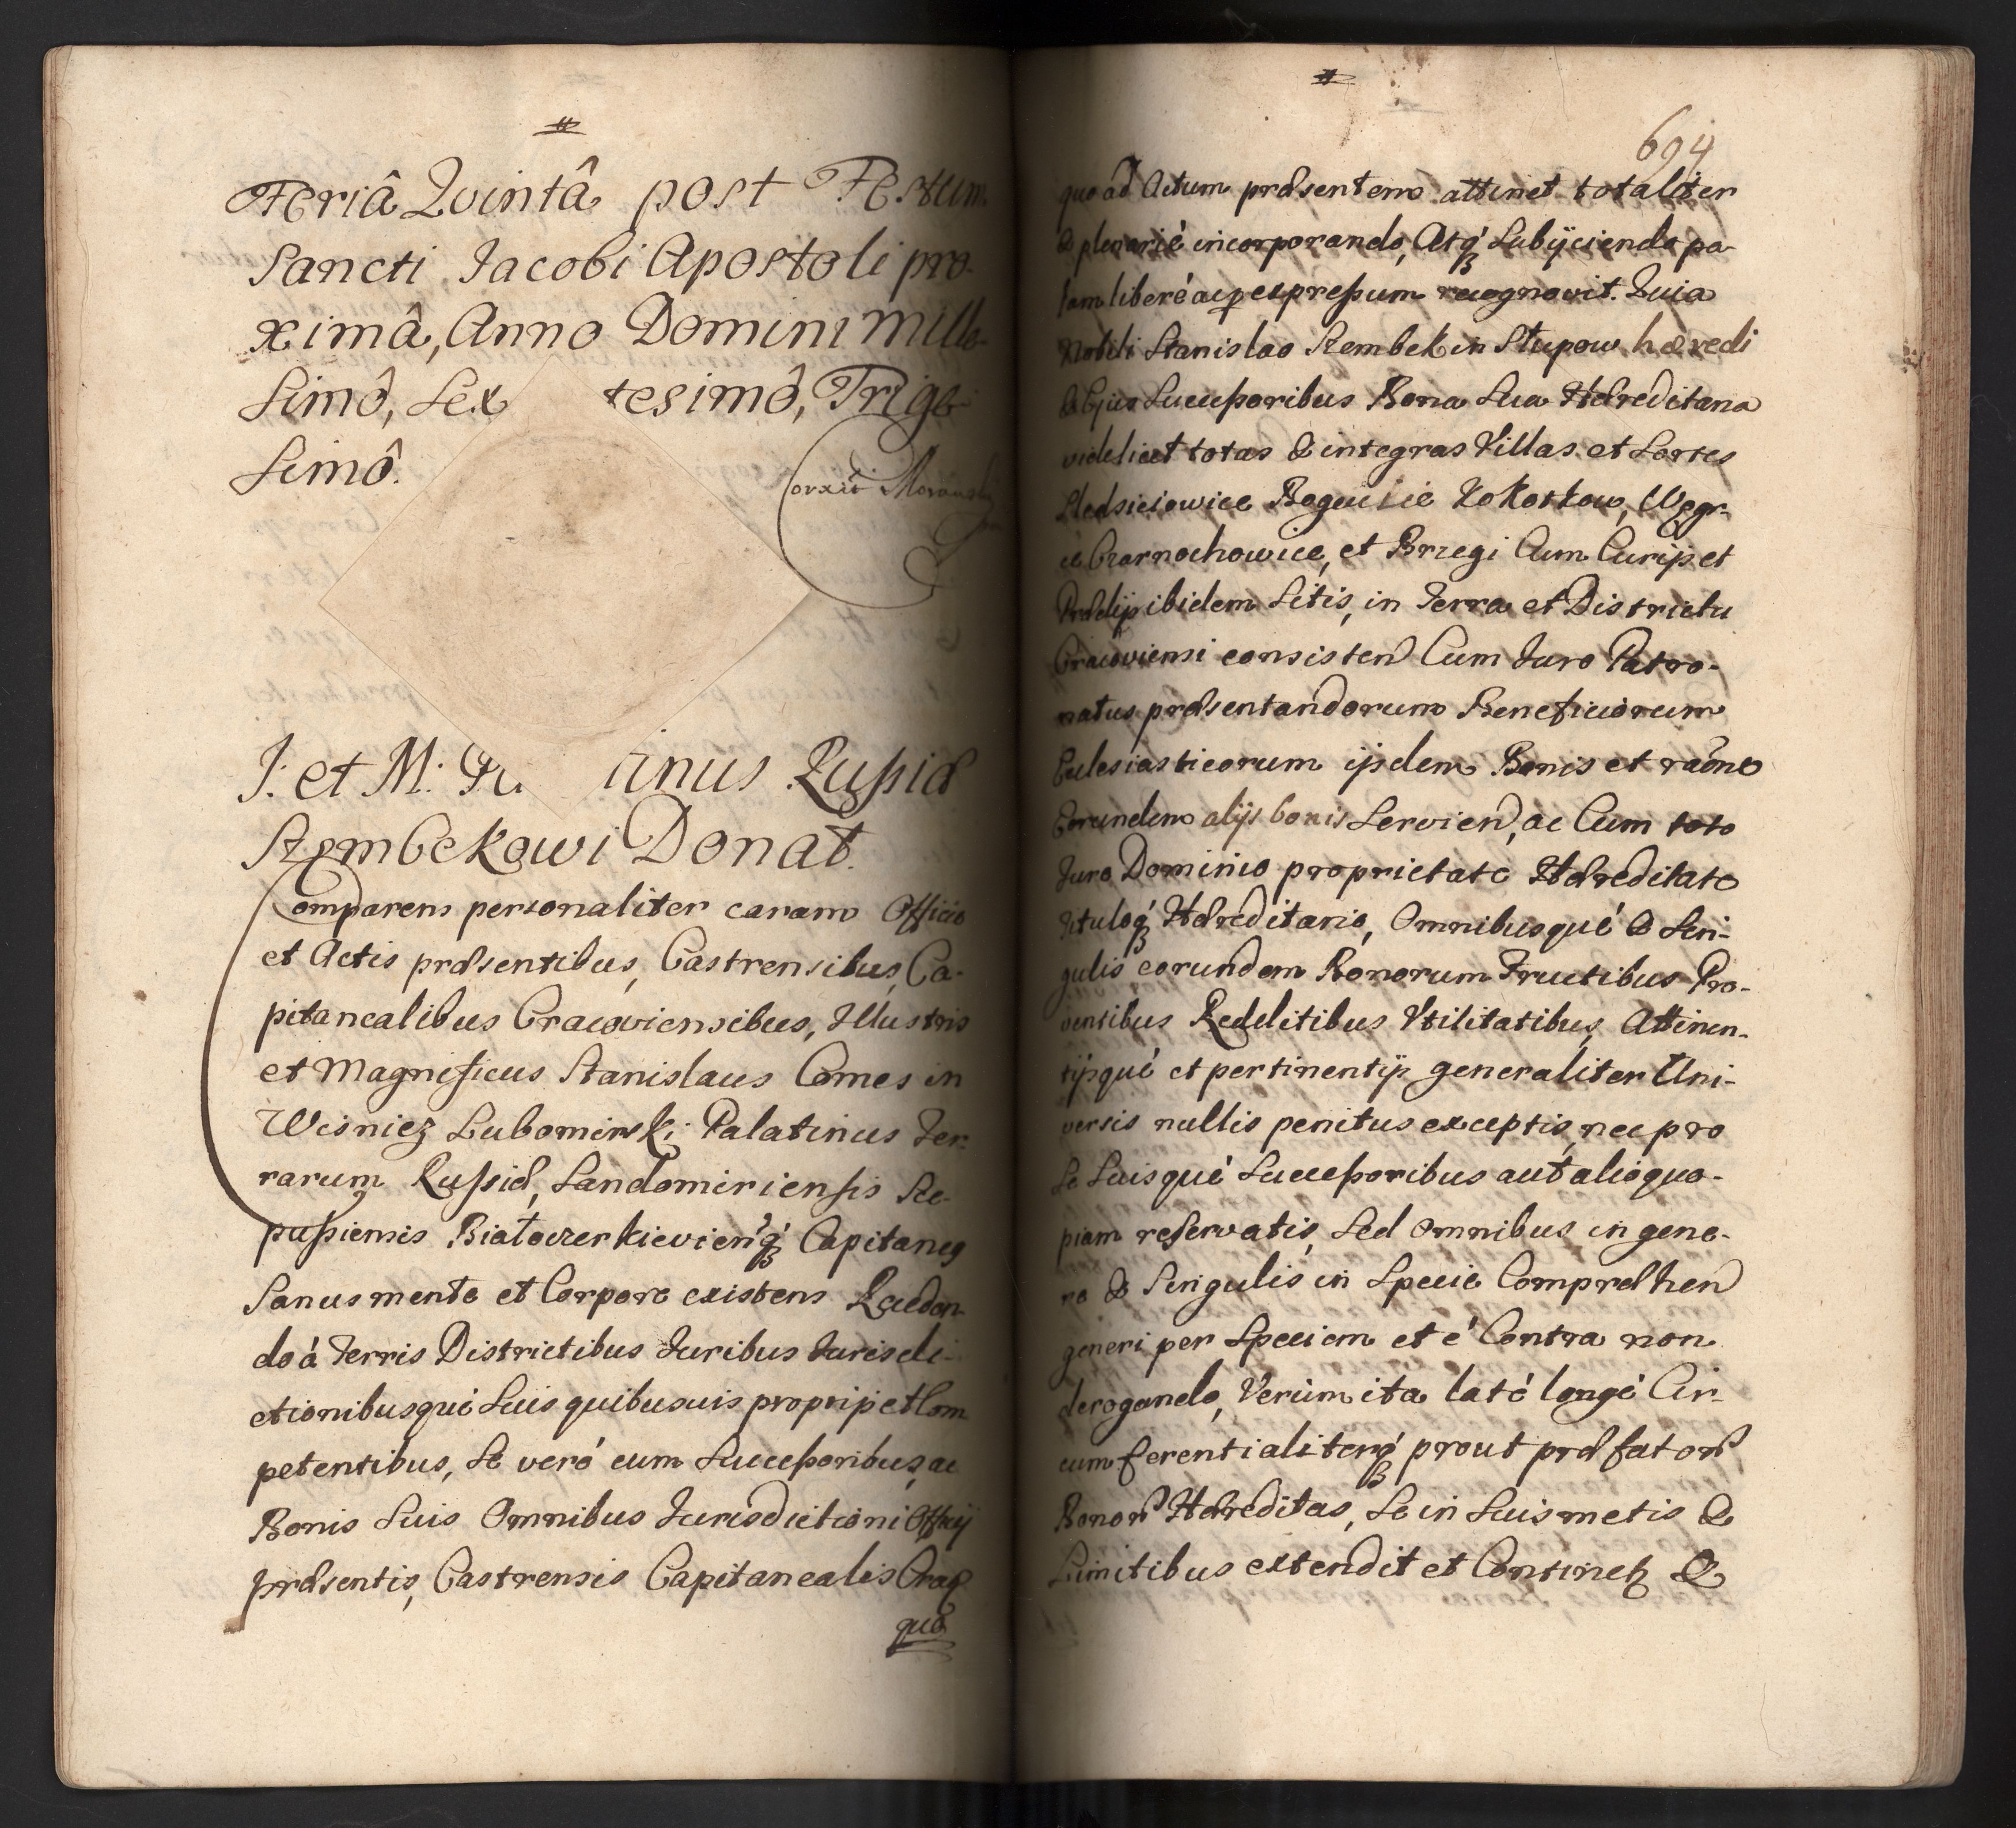 Feriâ Qvintâ post Festum
Sancti Jacobi Apostoli pro-
ximâ, Anno Domini Mille-
simô, Sex tesimô, Trige-
simô.
Correxit
J: et M: inus Russiæ
Szembekowi Donat.
Comparens personaliter coram Officio
et Actis præsentibus, Castrensibus, Ca-
pitanealibus Cracoviensibus, Illustris
et Magnificus Stanislaus Comes in
Wisnicz Lubomirski Palatinus Ter-
rarum Russiæ, Sandomiriensis Sce-
pusiensis Białocerkievien̄q́ꝫ Capitaneꝰ
Sanus mente et Corpore existens Recedon-
do á Terris Districtibus Juribus Jurisdi-
ctionibusqué Suis quibusuis proprijs et Com
petentibus, Se veró cum Successoribus, ac
Bonis Suis Omnibus Jurisdictioni Officij
præsentis, Castrensis Capitanealis Crac.
quo
694
quo ad Actum præsentem attinet totaliter
& plenarié incorporando, Atq́ꝫ Subijciendo pa-
lam liberé acꝑ expressum recognovit. Quia
Nobili Stanislao Szembek in Słupow hæredi
& Ejus Successoribus Bona Sua Hæreditaria
videlicet totas & integras Villas et Sortes
Sledsieiowice Bogucice Kokotkow, Węgr-
ce Czarnochowice, et Brzegi Cum Curijs et
Prædijs ibidem Sitis, in Terra et Districtu
Cracoviensi consisten̄ Cum Jure Patro-
natus præsentandorum Beneficiorum
Ecclesiasticorum ijsdem Bonis et raōne
Eorundem alijs bonis Servien̄, ac Cum toto
Jure Dominio proprietate Hæreditate
Tituloq́ꝫ Hæreditario, Omnibusqué & Sin-
gulis eorundem Bonorum Fructibus Pro-
ventibus Redditibus Vtilitatibus, Attinen-
tijsqué et pertinentijs generaliter Uni-
versis nullis penitus exceptis, nec pro
Se Suisqué Successoribus aut alio quo-
piam reservatis, Sed omnibus in gene-
re & Singulis in Specie Compræhen̄
generi per Speciem et é Contra non
derogando, Verúm ita laté longé Cir-
cumferentialiterq́ꝫ prout præfatorꝫ
Bonorꝫ Hæreditas, Se in Suis metis &
Limitibus extendit et Continetꝫ &